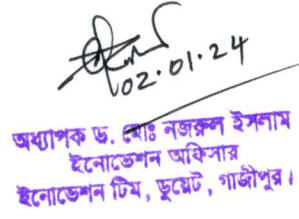 02.01.24
অধ্যাপক ড. মোঃ নজরুল ইসলাম
ইনোভেশন অফিসার
ইনোভেশন টিম, ডুয়েট, গাজীপুর।